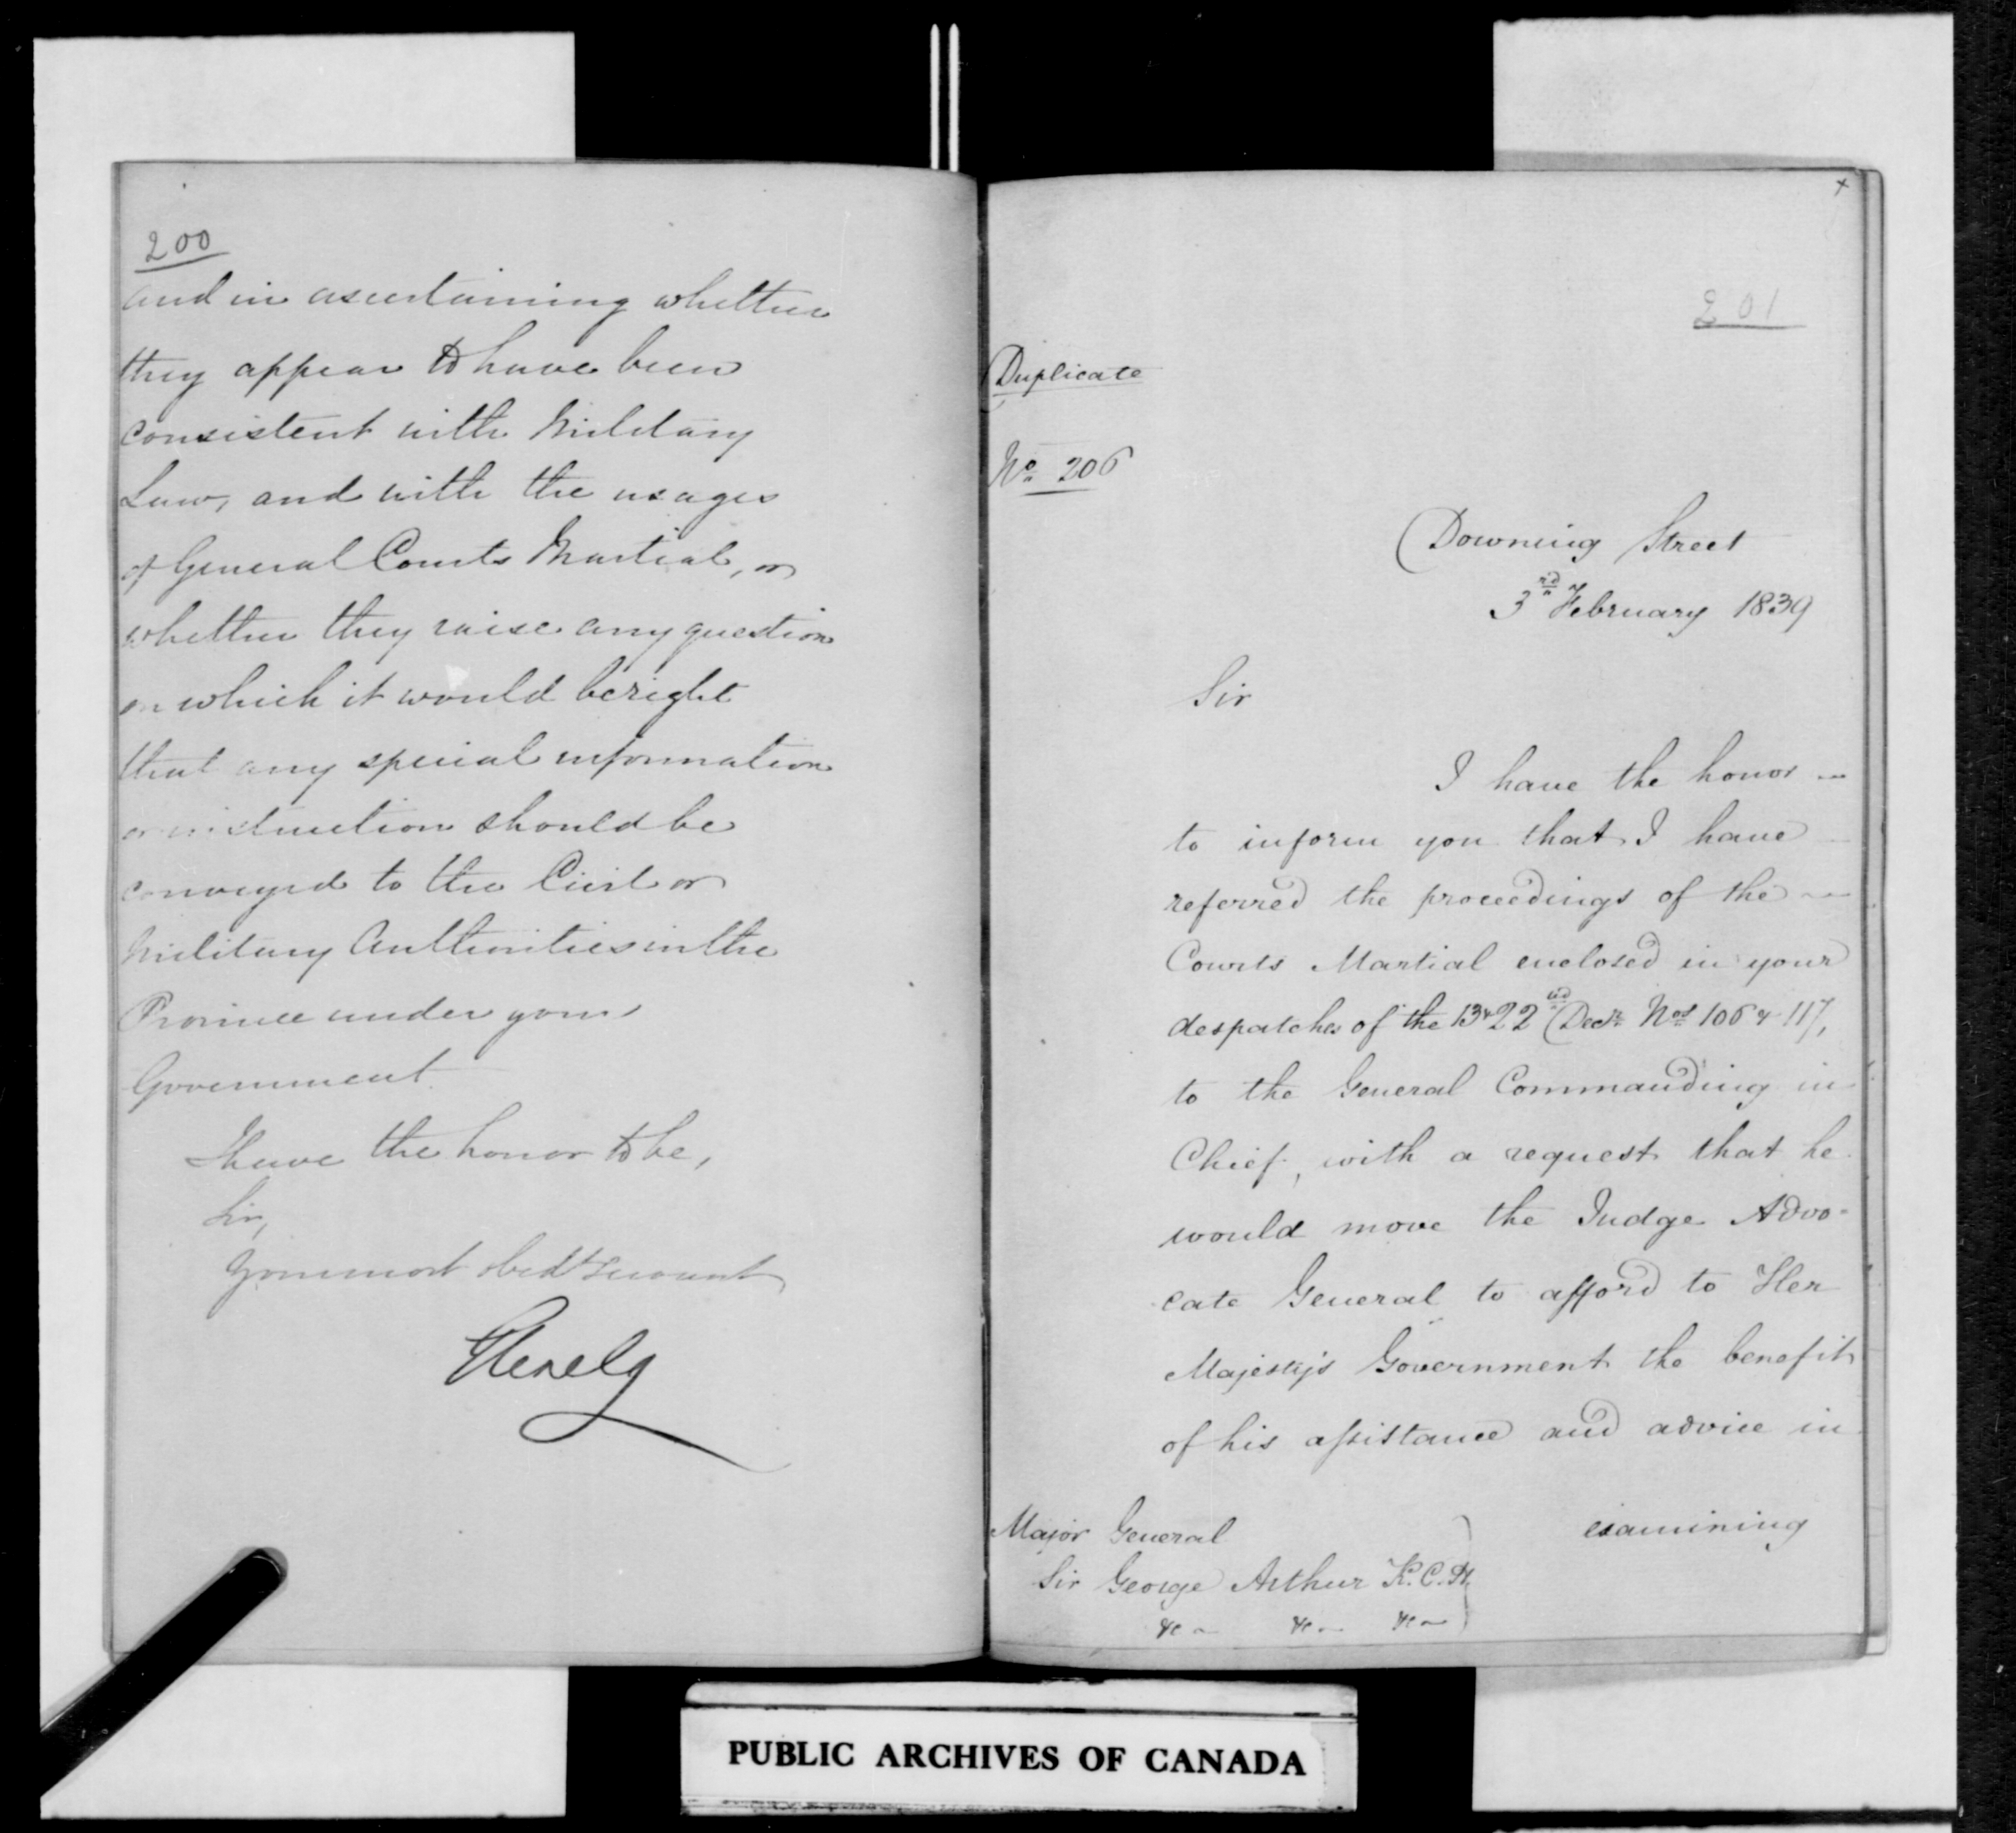 200
and in ascertaining whether
they appear to have been
consistent with Military
Law, and with the usages
of General Courts Martial, or
whether they raise any question
on which it would be right
that any special information
or instruction should be
conveyed to the Civil or
Military Authorities in the
Province under your
Government.
I have the honor to be,
Sir,
Your most obedt servant
Glenelg
201
Duplicate
No 206
Downing Street
3rd February 1839
Sir
I have the honor
to inform you that I have
referred the proceedings of the
Courts Martial enclosed in your
despatches of the 13 & 22nd Decr Nos 106 & 117,
to the General Commanding in
Chief, with a request that he
would move the Judge Advo-
cate General to afford to Her
Majesty's Government the benefit
of his assistance and advice in
examining
Major General
Sir George Arthur K.C.H.
&c &c &c
PUBLIC ARCHIVES OF CANADA